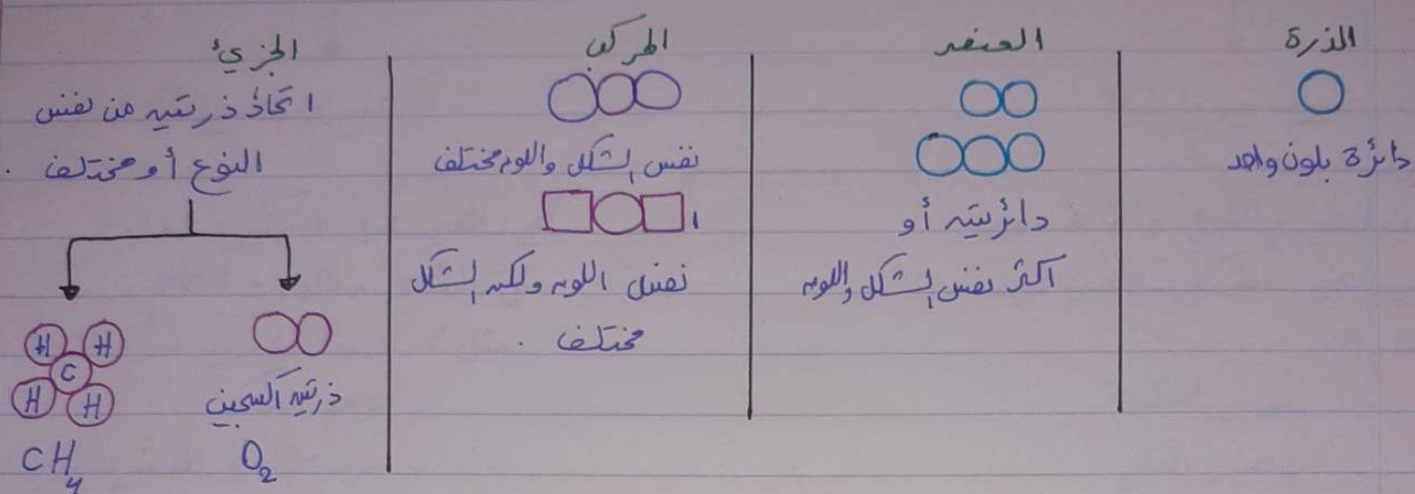 الذرة
دائرة بلون واحد
العنصر
دائرتين أو
أكثر نفس الشكل واللون
المركب
نفس الشكل واللون مختلف
أ
نفس اللون ولكن الشكل
مختلف .
الجزيء
اتحاد ذرتين من نفس
النوع أو مختلف .
ذرتين أكسجين
O₂
H H
C
H H
CH₄